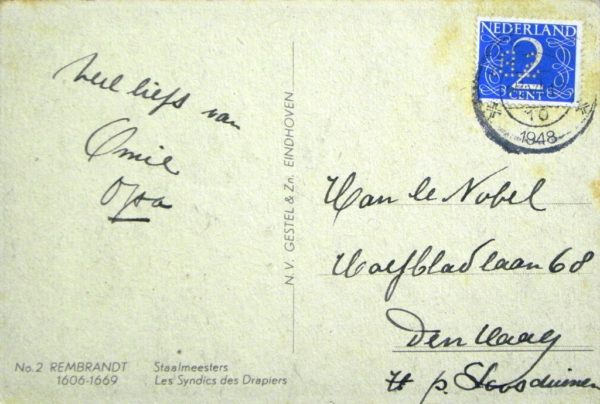 veel liefs van
Omie
Opa
N.V. GESTEL & Zn. EINDHOVEN
NEDERLAND
2
CENT
10
1948
Han le Nobel
Wolfbladlaan 68
Den Haag
p. Loosduinen
No. 2 REMBRANDT Staalmeesters
1606-1669 Les Syndics des Drapiers